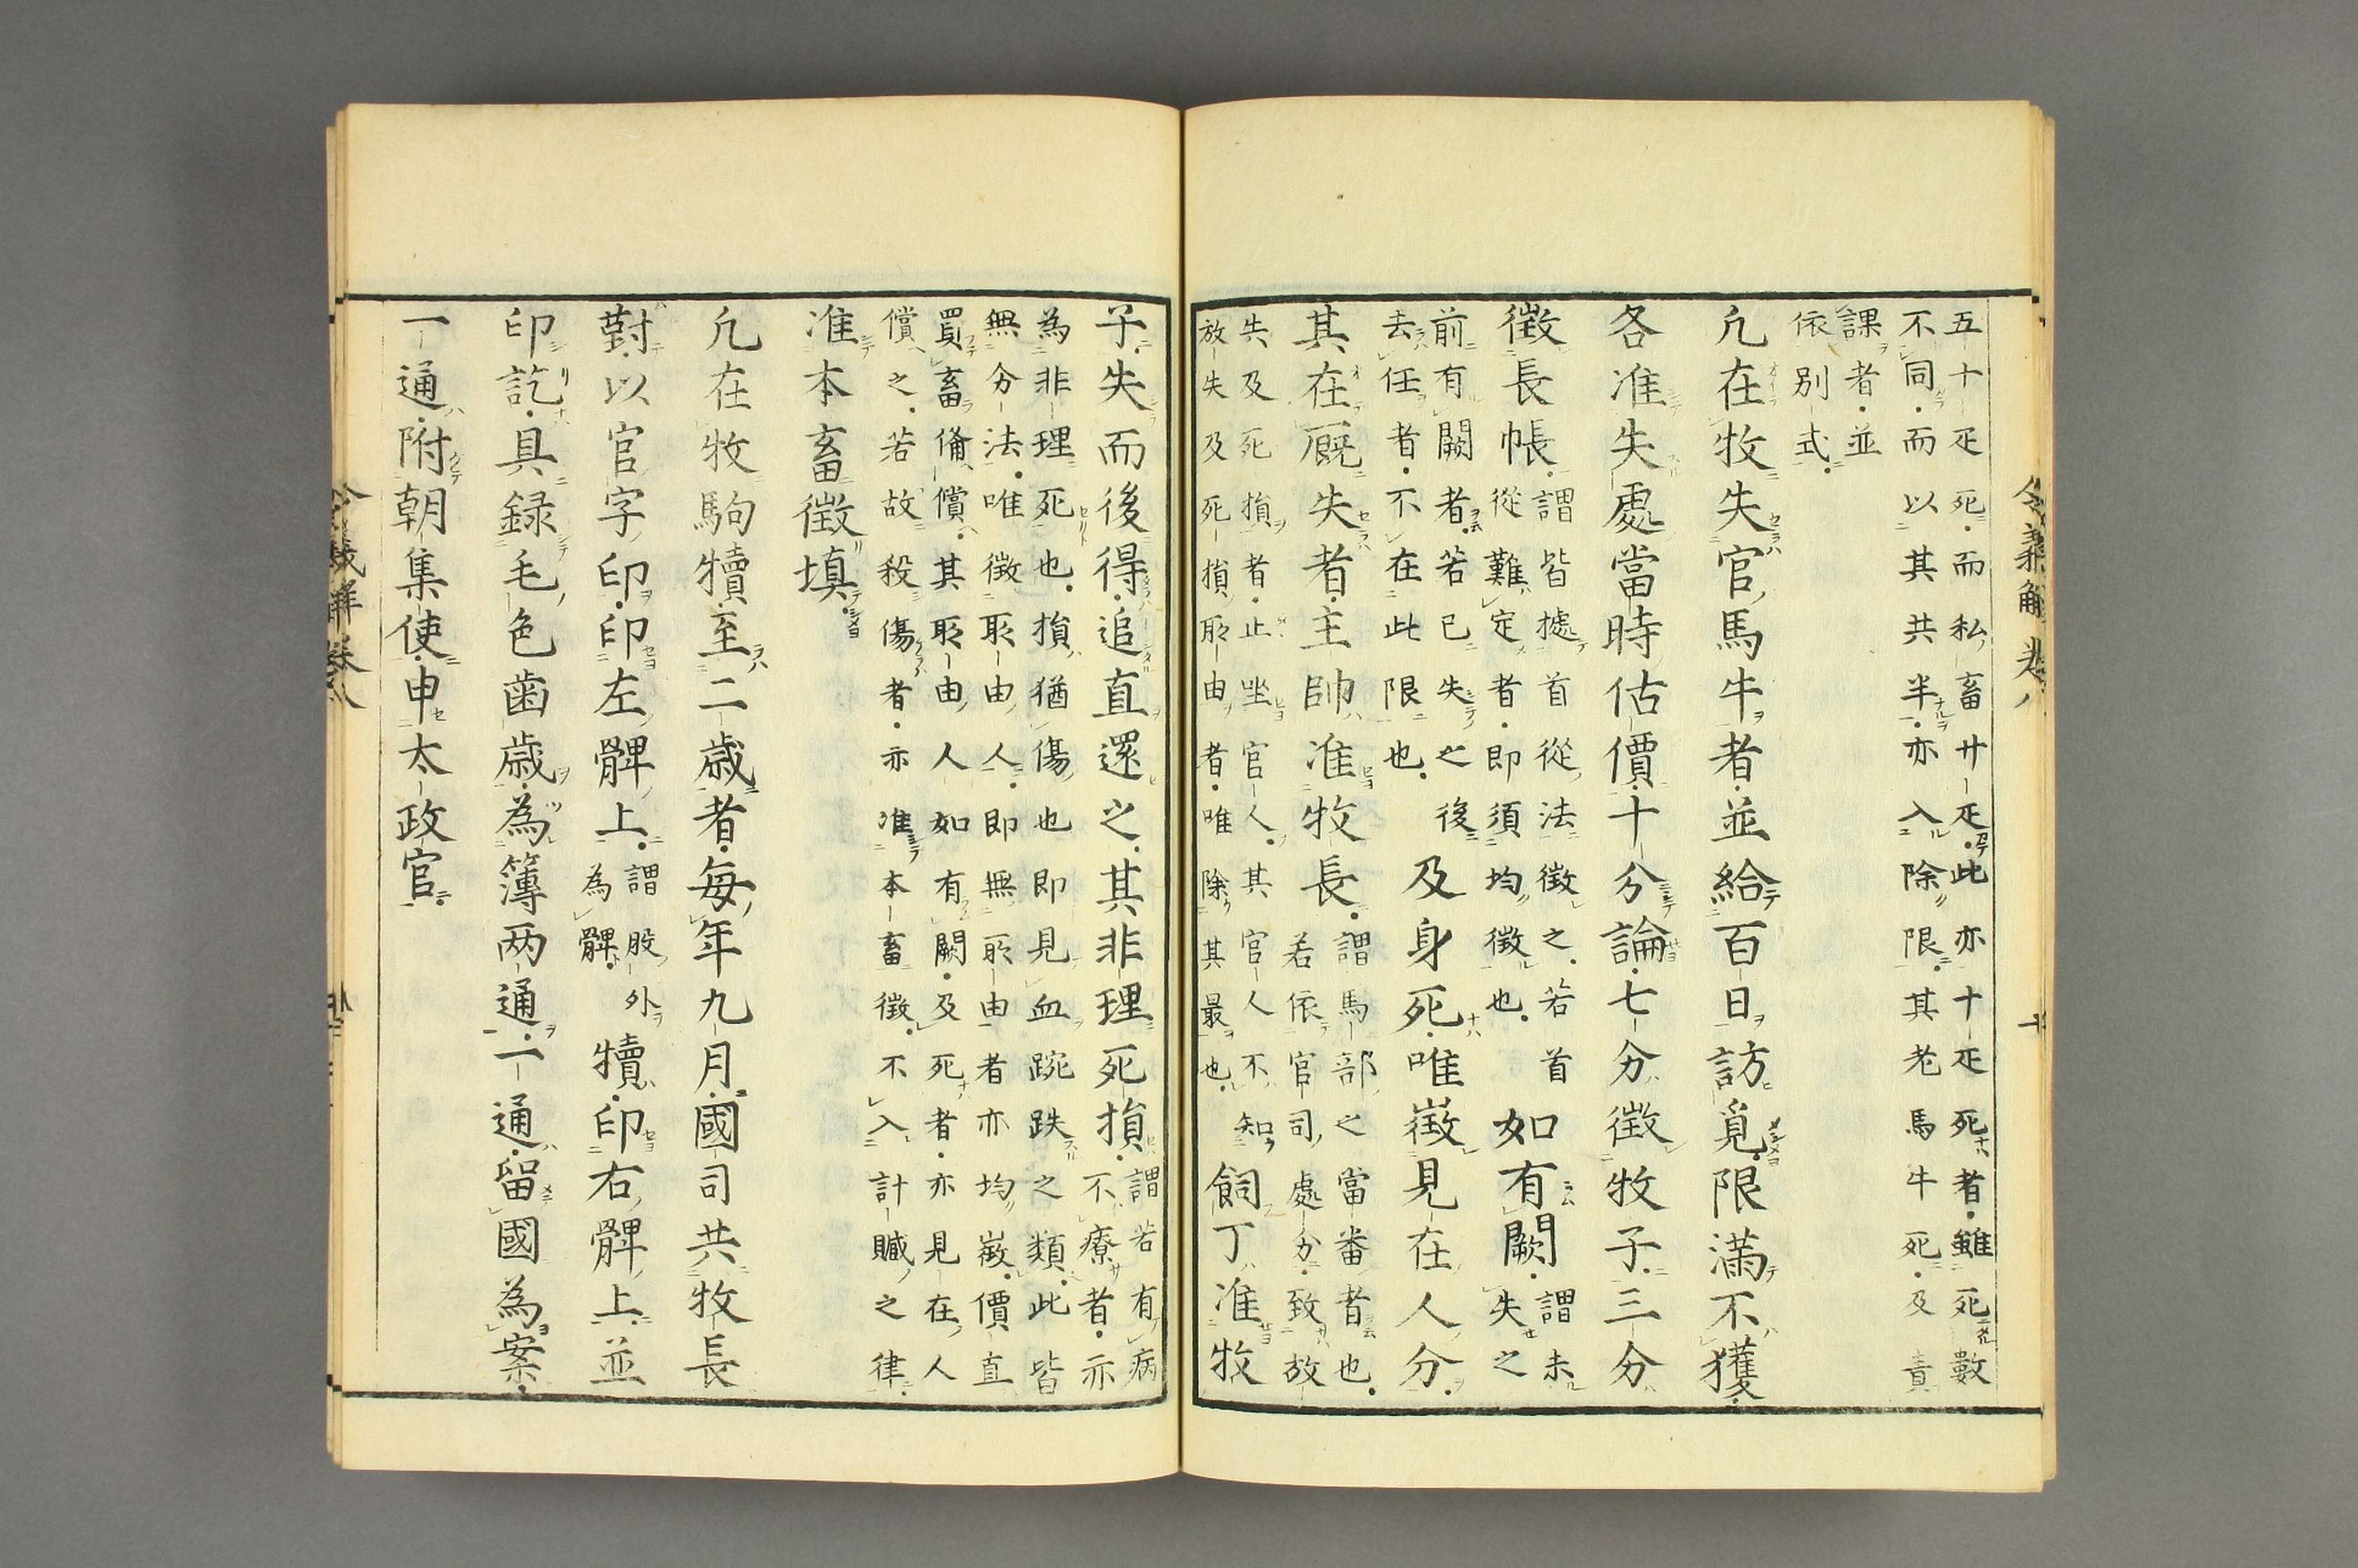 五十疋死而私畜廿疋此亦十疋死者雖死數
不同而以其共半亦入除限其老馬牛死及責
課者並
依別式
凢在牧失官馬牛者並給百日訪覓限滿不獲
各准失處當時估價十分論七分徵牧子三分
徵長帳謂皆據首從法徵之若首
從難定者即須均徵也如有闕謂未
失之
前有闕者若已失之後
去任者不在此限也及身死唯徵見在人分
其在厩失者主帥准牧長謂馬部之當番者也
若依官司處分致放
失及死損者止坐官人其官人不知
放失及死損取由者唯除其最也飼丁准牧
子失而後得追直還之其非理死損謂若有病
不療者亦
為非理死也損猶傷也即見血踠跌之類此皆
無分法唯徵取由人即無取由者亦均徵價直
買畜俻償其取由人如有闕及死者亦見在人
償之若故殺傷者亦准本畜徵不入計贓之律
准本畜徵填
凢在牧駒犢至二歳者每年九月國司共牧長
對以官字印印左髀上謂股外
為髀犢印右髀上並
印訖具録毛色歯歳為簿两通一通留國為案
一通附朝集使申太政官
令義解卷八
令義解卷八